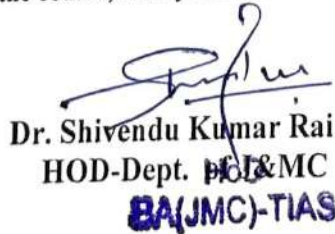 Dr. Shivendu Kumar Rai
HOD-Dept. of J&MC
HOD
BA(JMC)-TIAS